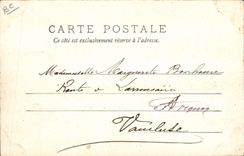 BC
CARTE POSTALE
Ce côté est exclusivement réservé à l'adresse.
Mademoiselle Marguerite Bonhoure
Route
Vaucluse